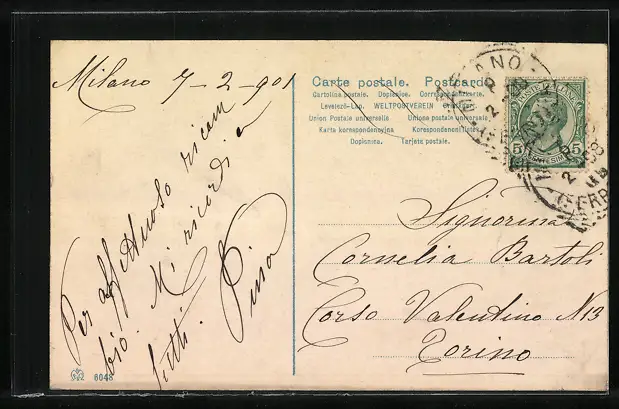 Milano 7-2-908
Per affettuoso ricam
bio. Mi ricordi a
tutti. Pina
6048
Carte postale. Postcard.
Cartolina postale. Dopisnice. Correspondenzkarte.
Levelező-Lap. WELTPOSTVEREIN
Union Postale universelle Unione postale universale
Karta korespondencyjna Korrespondenzlist
Dopisnica. Tarjeta postale.
MILANO
5 5
(FERR
Signorina
Cornelia Bartoli
Corso Valentino N 13
Torino